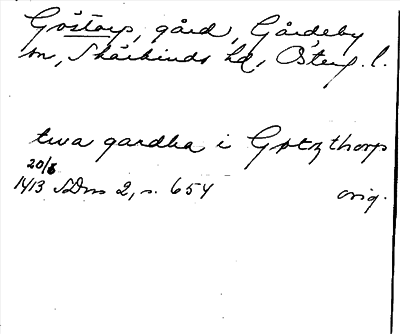 Göstorp, gård, Gårdeby
sn, Skärkinds hd, Österg. l.
twa gardha i Gøtzthorp
20/8
1413 SDns 2, s. 654 orig.